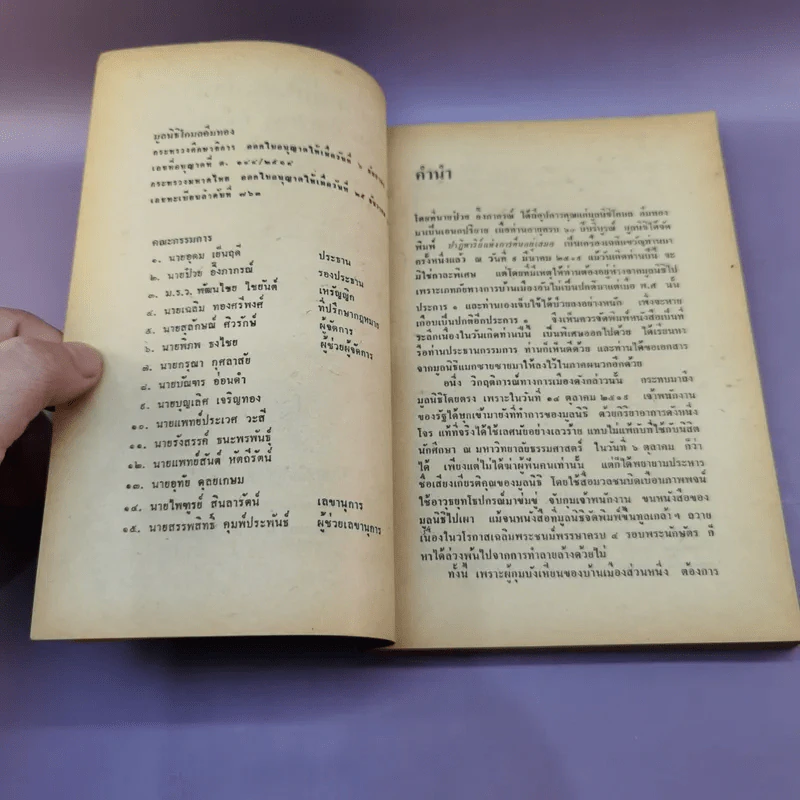 มูลนิธิโกมลคีมทอง
กระทรวงศึกษาธิการ ออกใบอนุญาตให้เมื่อวันที่ ๖
เลขที่อนุญาตที่ ต. ๑๔๔/๒๕๑๔
กระทรวงมหาดไทย ออกใบอนุญาตให้เมื่อวันที่ ๒๕
เลขทะเบียนลำดับที่ ๗๖๓
คณะกรรมการ
๑. นายอุดม เย็นฤดี ประธาน
๒. นายป๋วย อึ๊งภากรณ์ รองประธาน
๓. ม.ร.ว. พัฒนไชย ไชยันต์ เหรัญญิก
๔. นายเฉลิม ทองศรีพงศ์ ที่ปรึกษากฎหมาย
๕. นายสุลักษณ์ ศิวรักษ์ ผู้จัดการ
๖. นายพิภพ ธงไชย ผู้ช่วยผู้จัดการ
๗. นายกรุณา กุศลาสัย
๘. นายบัณฑร อ่อนดำ
๙. นายบุญเลิศ เจริญทอง
๑๐. นายแพทย์ประเวศ วะสี
๑๑. นายรังสรรค์ ธนะพรพันธุ์
๑๒. นายแพทย์สันต์ หัตถีรัตน์
๑๓. นายอุทัย ดุลยเกษม
๑๔. นายไพฑูรย์ สินลารัตน์ เลขานุการ
๑๕. นายสรรพสิทธิ์ คุมพ์ประพันธ์ ผู้ช่วยเลขานุการ
คำนำ
โดยที่นายป๋วย อึ๊งภากรณ์ ได้มีอุปการคุณแก่มูลนิธิโกมล คีมทอง
มาเป็นเอนกปริยาย เมื่อท่านอายุครบ ๖๐ ปีบริบูรณ์ มูลนิธิได้จัด
พิมพ์ ปาฏิหาริย์แห่งการตื่นอยู่เสมอ เป็นเครื่องเฉลิมขวัญท่านมา
ครั้งหนึ่งแล้ว ณ วันที่ ๙ มีนาคม ๒๕๑๙ แม้วันเกิดท่านปีนี้ จะ
มิใช่กาละพิเศษ แต่โดยที่มีเหตุให้ท่านต้องอยู่ห่างจากมูลนิธิไป
เพราะเภทภัยทางการบ้านเมืองอันไม่เป็นปกติมาแต่เมื่อ พ.ศ. นั้น
ประการ ๑ และท่านเองเจ็บไข้ได้ป่วยลงอย่างหนัก เพิ่งจะหาย
เกือบเป็นปกติอีกประการ ๑ จึงเห็นควรจัดพิมพ์หนังสือเป็นที่
ระลึกเนื่องในวันเกิดท่านปีนี้ เป็นพิเศษออกไปด้วย ได้เรียนหา
รือท่านประธานกรรมการ ท่านก็เห็นดีด้วย และท่านได้ขอเอกสาร
จากมูลนิธิแมกซายซายมาให้ลงไว้ในภาคผนวกอีกด้วย
อนึ่ง วิกฤติการณ์ทางการเมืองดังกล่าวนั้น กระทบมาถึง
มูลนิธิโดยตรง เพราะในวันที่ ๑๔ ตุลาคม ๒๕๑๙ เจ้าพนักงาน
ของรัฐได้บุกเข้ามายังที่ทำการของมูลนิธิ ด้วยกิริยาอาการดังหนึ่ง
โจร แท้ที่จริงได้ใช้เศษนัยอย่างเลวร้าย แทบไม่แพ้กับที่ใช้กับนิสิต
นักศึกษา ณ มหาวิทยาลัยธรรมศาสตร์ ในวันที่ ๖ ตุลาคม ก็ว่า
ได้ เพียงแต่ไม่ได้ฆ่าผู้ทีนคนเท่านั้น แต่ก็ได้พยายามประหาร
ชื่อเสียงเกียรติคุณของมูลนิธิ โดยใช้สื่อมวลชนบิดเบือนภาพพจน์
ใช้อาวุธยุทโธปกรณ์มาข่มขู่ จับกุมเจ้าพนักงาน ขนหนังสือของ
มูลนิธิไปเผา แม้จนหนังสือที่มูลนิธิจัดพิมพ์ขึ้นทูลเกล้าฯ ถวาย
เนื่องในวโรกาสเฉลิมพระชนม์พรรษาครบ ๔ รอบพระนักษัตร ก็
หาได้ล่วงพ้นไปจากการทำลายล้างด้วยไม่
ทั้งนี้ เพราะผู้กุมบังเหียนของบ้านเมืองส่วนหนึ่ง ต้องการ